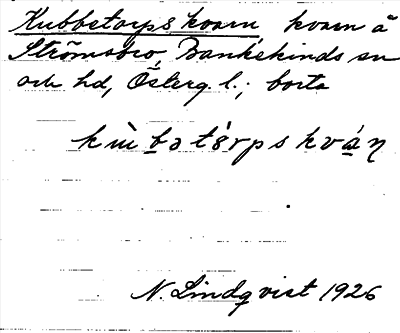 Kubbetorpskvarn kvarn å
Strömsbro, Bankekinds sn
och hd, Österg. l.; borta
kùbatórpskván
N. Lindqvist 1926